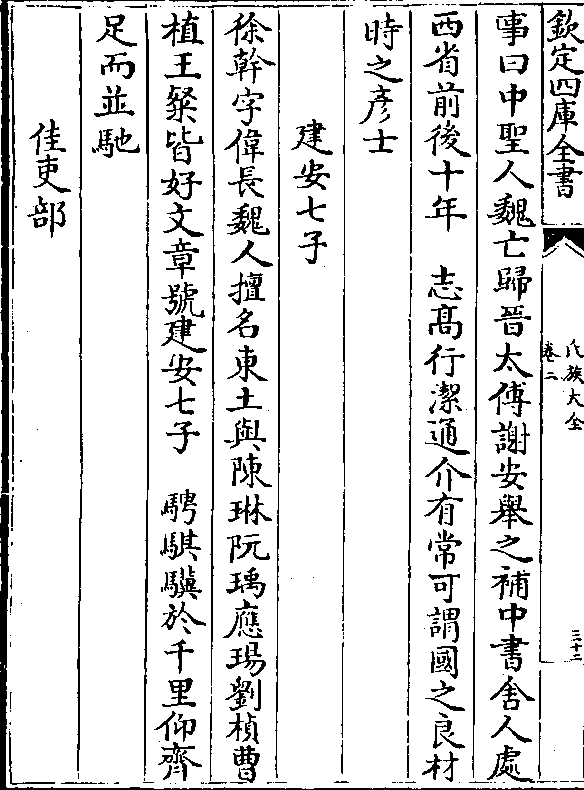 欽定四庫全書
氏族大全
卷二
三十二
事曰中聖人魏亡歸晉太傅謝安舉之補中書舍人處
西省前後十年 志髙行潔通介有常可謂國之良材
時之彥士
建安七子
徐幹字偉長魏人擅名東土與陳琳阮瑀應瑒劉楨曹
植王粲皆好文章號建安七子 騁騏驥於千里仰齊
足而並馳
佳吏部